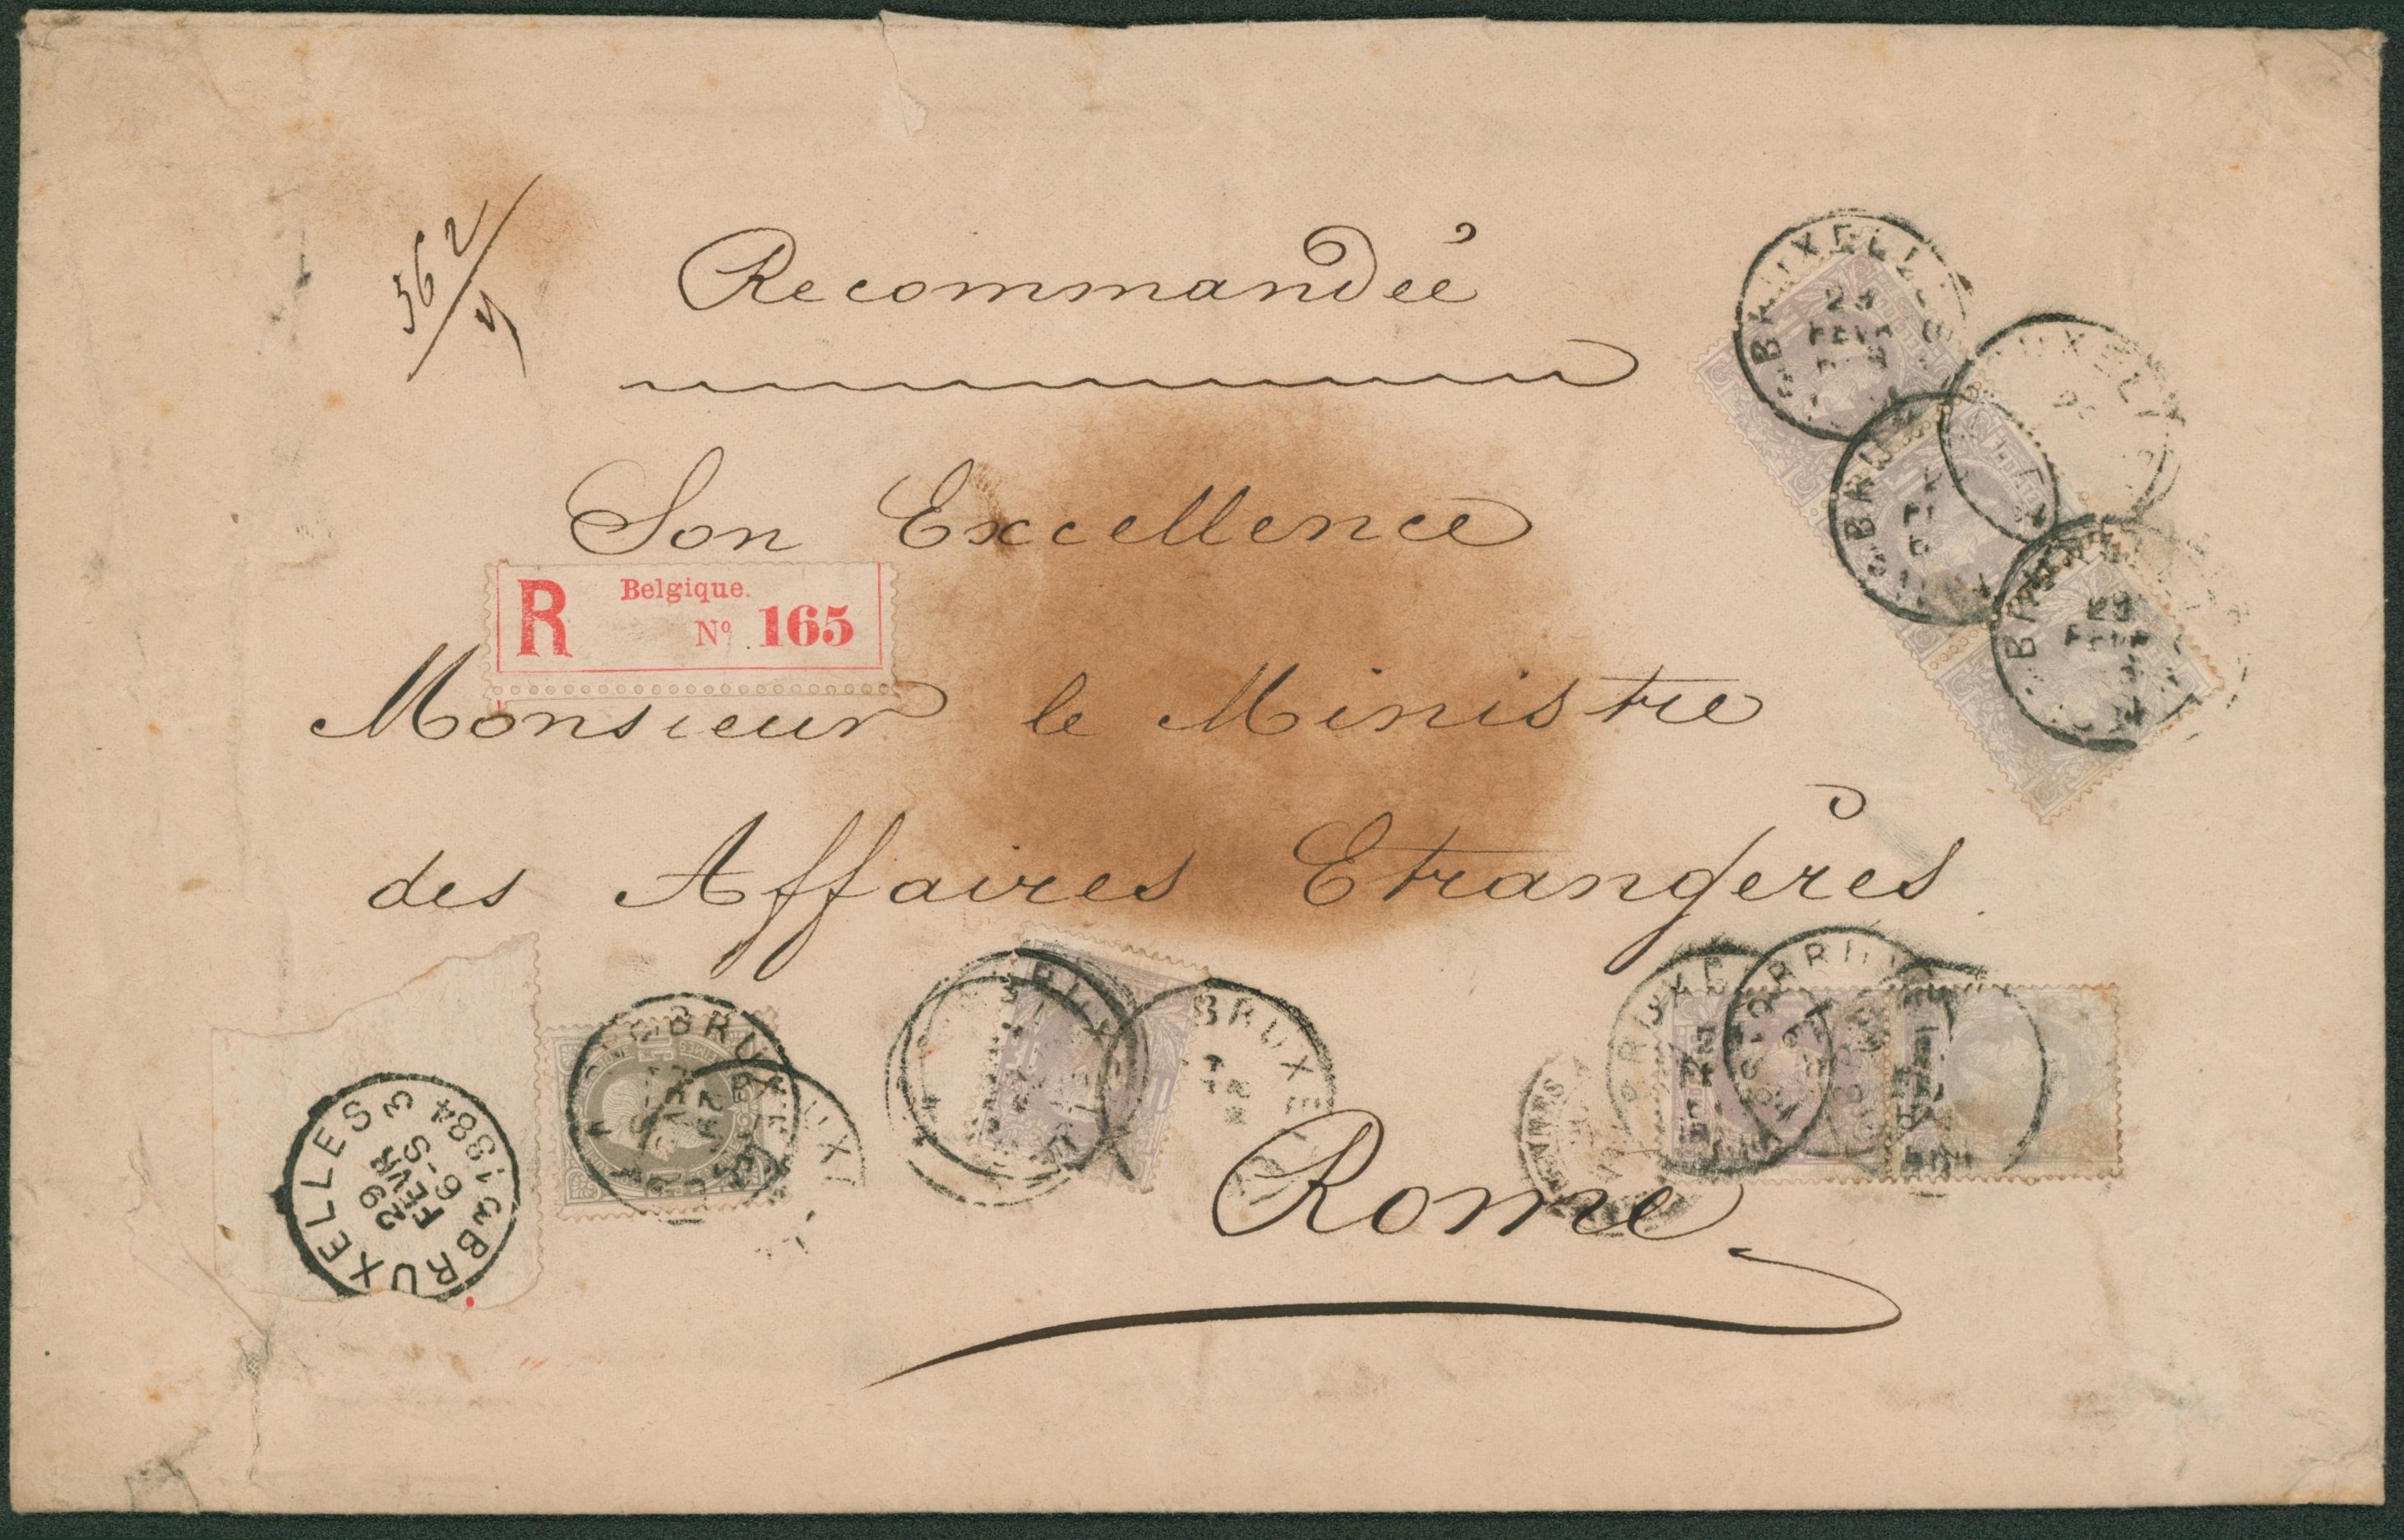 562/4
Recommandée
Son Excellence
R Belgique.
Nº 165
Monsieur le Ministre
des Affaires Etrangères
Rome
BRUXELLES 3
29
FEVR
6-S
1884
3 BRUXELLES
29
FEVR
BRUXELL
BRUXE